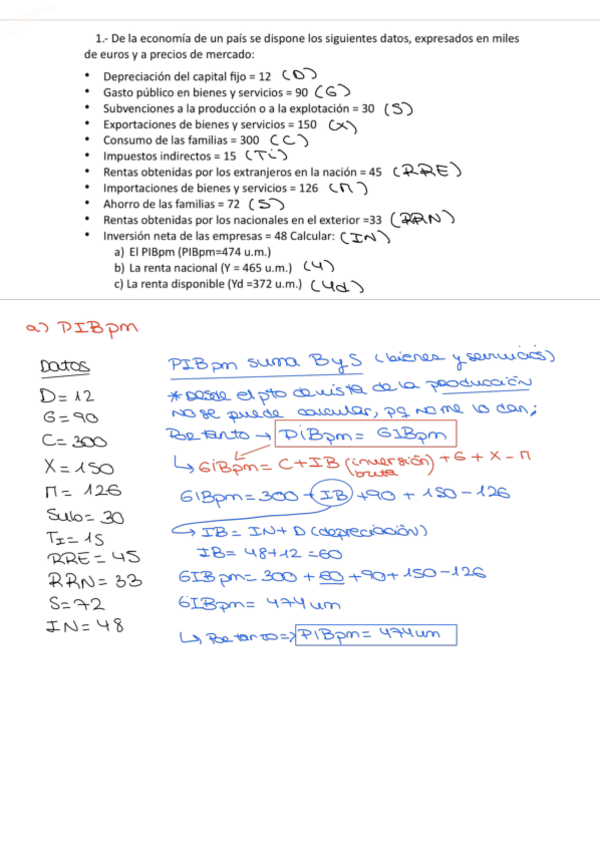 1.- De la economía de un país se dispone los siguientes datos, expresados en miles
de euros y a precios de mercado:
• Depreciación del capital fijo = 12 (D)
• Gasto público en bienes y servicios = 90 (G)
• Subvenciones a la producción o a la explotación = 30 (S)
• Exportaciones de bienes y servicios = 150 (X)
• Consumo de las familias = 300 (C)
• Impuestos indirectos = 15 (Ti)
• Rentas obtenidas por los extranjeros en la nación = 45 (RRE)
• Importaciones de bienes y servicios = 126 (M)
• Ahorro de las familias = 72 (S)
• Rentas obtenidas por los nacionales en el exterior =33 (RRN)
• Inversión neta de las empresas = 48 Calcular: (IN)
a) El PIBpm (PIBpm=474 u.m.)
b) La renta nacional (Y = 465 u.m.) (Y)
c) La renta disponible (Yd =372 u.m.) (Yd)
a) PIBpm
Datos
D= 12
G= 90
C= 300
X= 150
M= 126
Sub= 30
TI= 15
RRE= 45
RRN= 33
S=72
IN= 48
PIBpm suma ByS (bienes y servicios)
* Desde el pto de vista de la producción
no se puede calcular, pq no me lo dan;
Por tanto → PiBpm= GIBpm
↳ GiBpm= C+IB (inversión bruta) + G + X - M
GIBpm= 300 + IB +90 + 150-126
↳ IB= IN+ D (depreciación)
IB= 48+12=60
GIBpm= 300 + 60 +90+150-126
GIBpm= 474um
↳ Por tanto => PIBpm= 474um